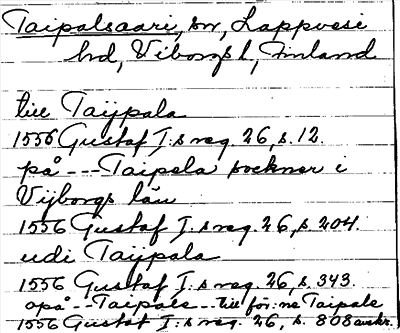 Taipalsaari, sn, Lappvesi
hd, Viborgs l, Finland
till Taijpala
1556 Gustaf I:s reg. 26, s. 12.
på --- Taipela sockner i
Vijborgs län
1556 Gustaf I:s reg. 26, s. 204.
udi Taijpala
1556 Gustaf I:s reg. 26, s. 343.
opå -- Taipale -- till för:ne Taipale
1556 Gustaf I:s reg. 26, s. 808 avskr.